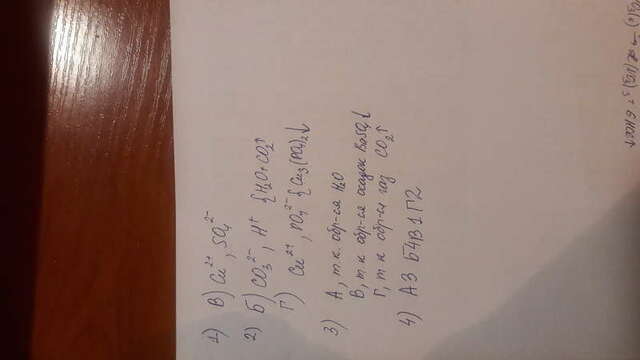 1) В) Cu²⁺, SO₄²⁻
2) Б) CO₃²⁻, H⁺ {H₂O+CO₂↑
Г) Cu²⁺, PO₄²⁻ {Cu₃(PO₄)₂↓
3) А, т.к. обр-ся H₂O
В, т.к обр-ся осадок BaSO₄↓
Г, т к обр-ся газ CO₂↑
4) А3 Б4В1Г2